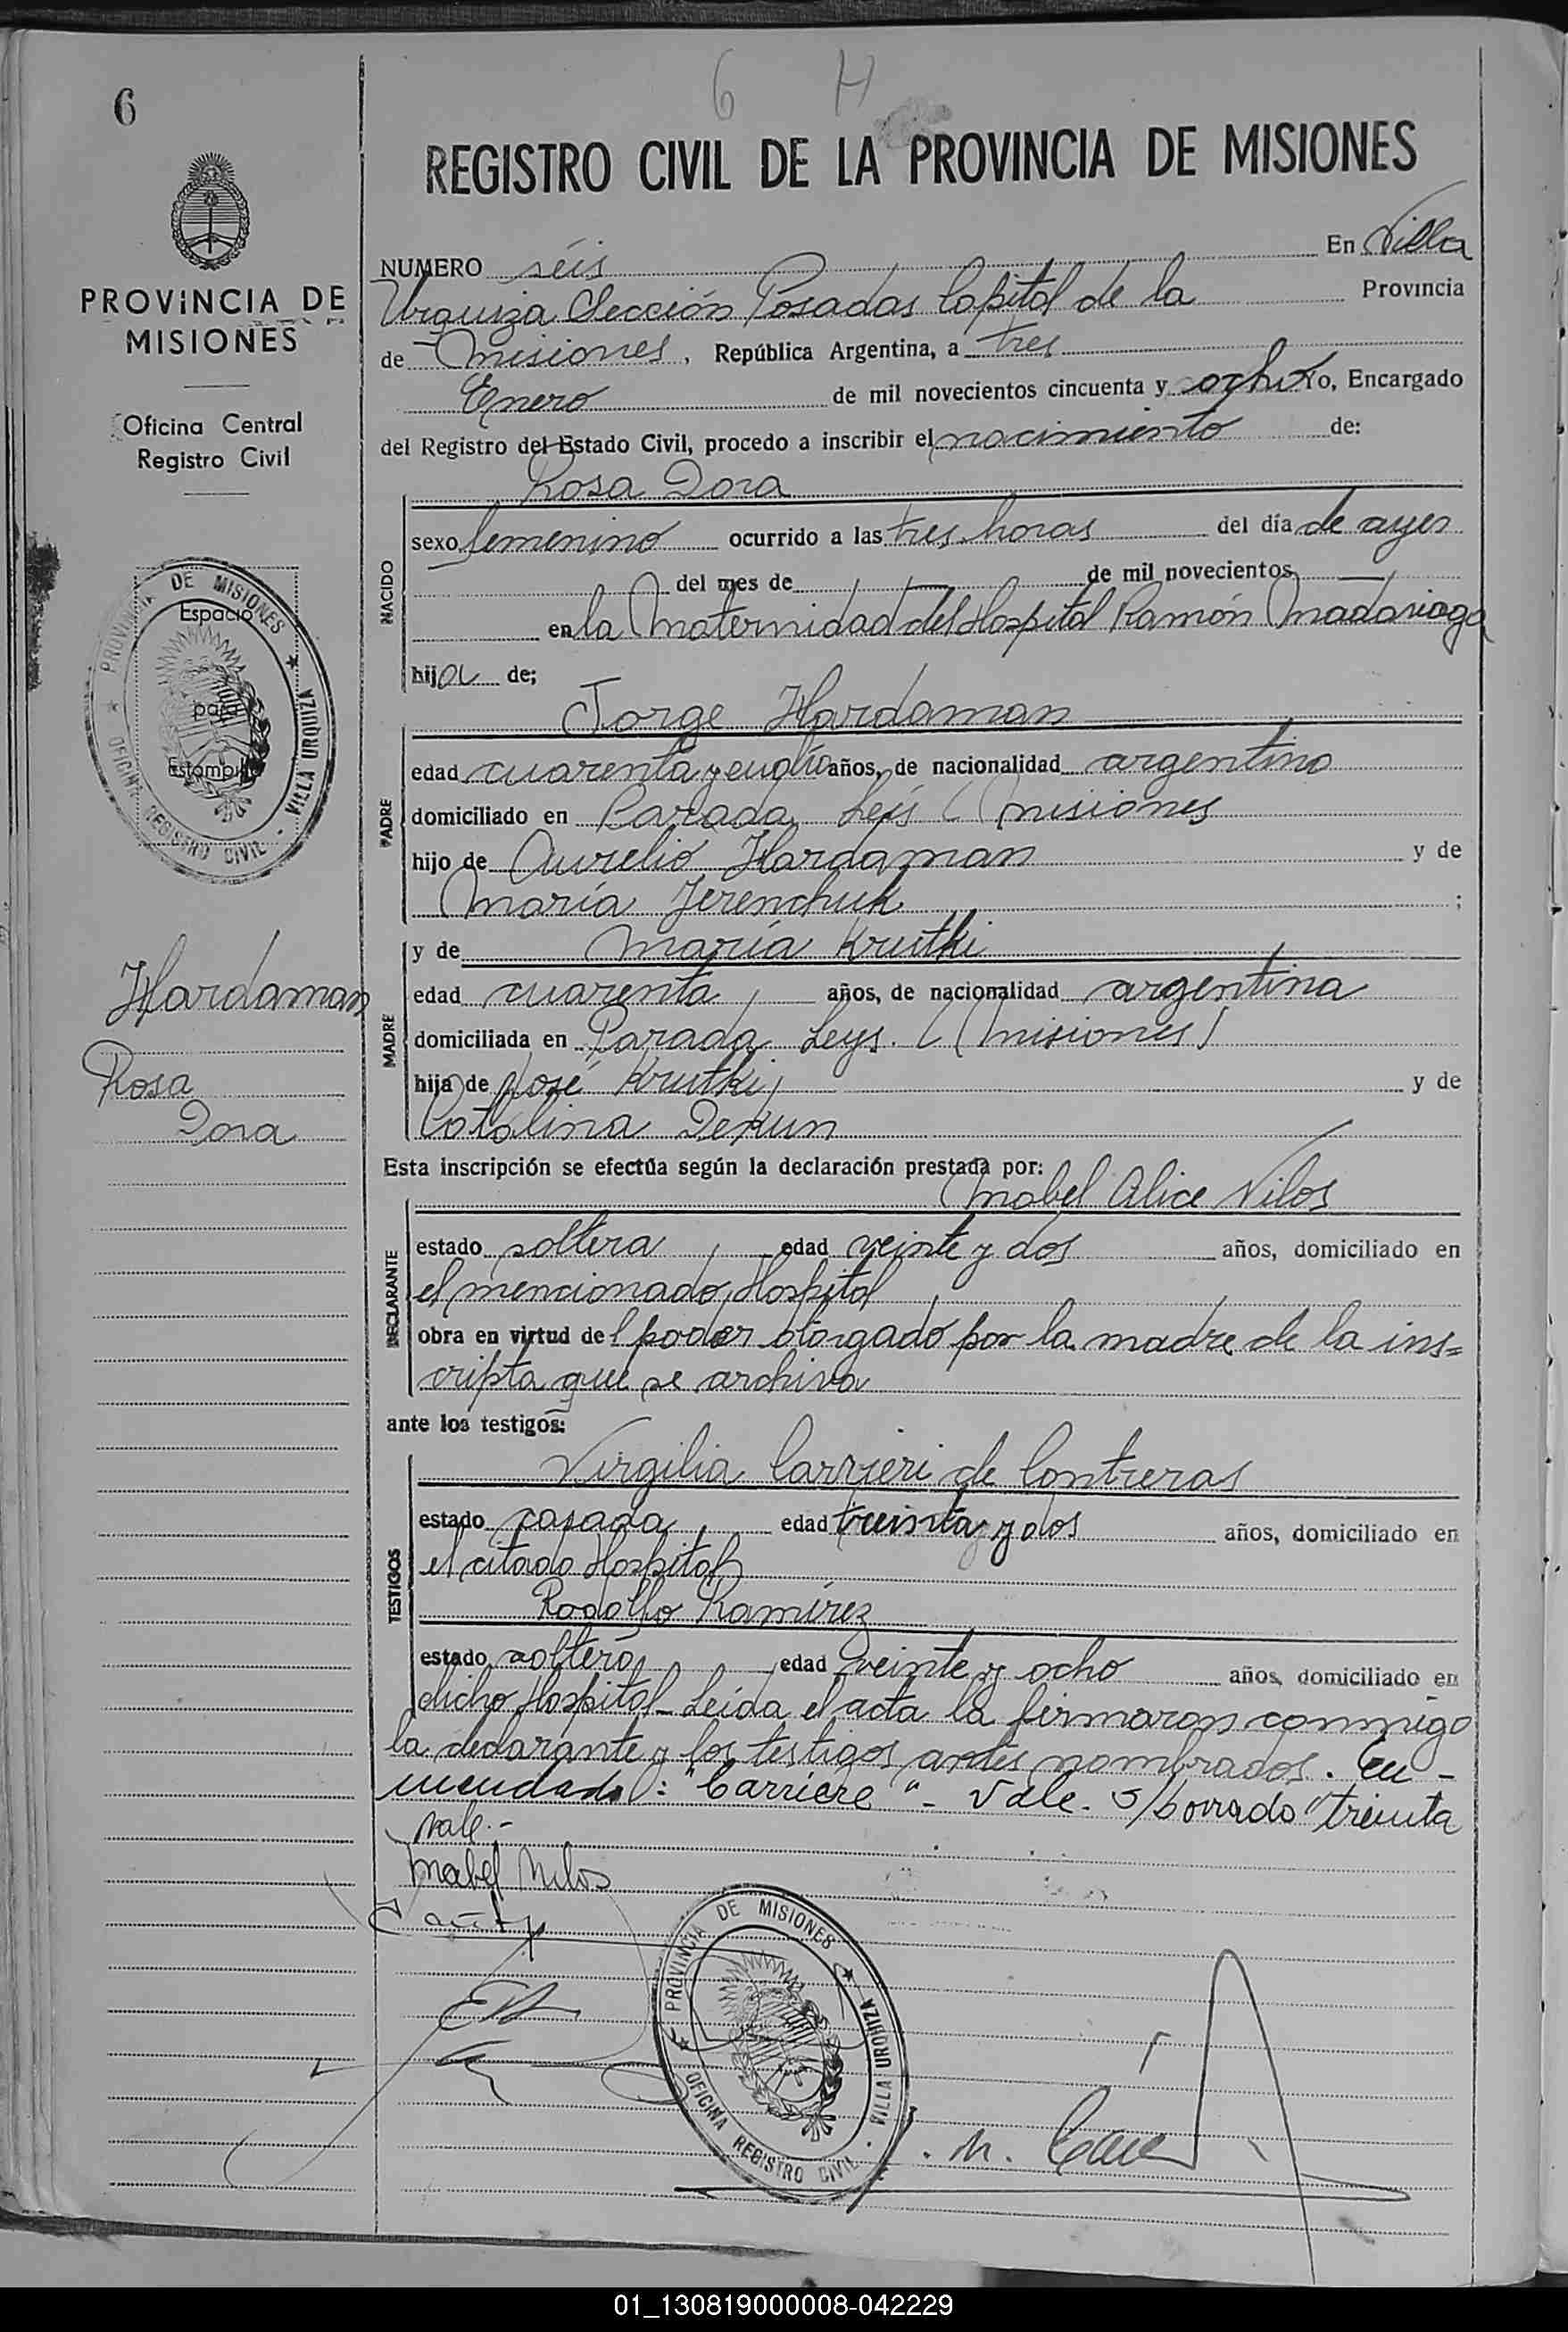 6 H
6
PROVINCIA DE
MISIONES
Oficina Central
Registro Civil
PROVINCIA DE MISIONES
OFICINA REGISTRO CIVIL - VILLA URQUIZA
Espacio
para
Estampilla
Hardaman
Rosa
Dora
REGISTRO CIVIL DE LA PROVINCIA DE MISIONES
NUMERO séis En Villa
Urquiza Sección Posadas Capital de la Provincia
de Misiones, República Argentina, a tres
Enero de mil novecientos cincuenta y ocho Yo, Encargado
del Registro del Estado Civil, procedo a inscribir el nacimiento de:
Rosa Dora
NACIDO
sexo femenino ocurrido a las tres horas del día de ayer
del mes de de mil novecientos
en la Maternidad del Hospital Ramón Madariaga
hija de;
Jorge Hardaman
PADRE
edad cuarenta y años, de nacionalidad argentino
domiciliado en Parada Leis (Misiones
hijo de Aurelio Hardaman y de
María Jerenchuk ;
y de María Krutki
MADRE
edad cuarenta, años, de nacionalidad argentina
domiciliada en Parada Leys. (Misiones)
hija de José Krutki, y de
Catalina Dekun
Esta inscripción se efectúa según la declaración prestada por:
Mabel Alice Nilos
DECLARANTE
estado soltera, edad veinte y dos años, domiciliado en
el mencionado Hospital
obra en virtud del poder otorgado por la madre de la ins=
cripta que se archiva
ante los testigos:
Virgilia Carrieri de Contreras
TESTIGOS
estado casada, edad treinta y dos años, domiciliado en
el citado Hospital
Rodolfo Ramírez
estado soltero, edad veinte y ocho años, domiciliado en
dicho Hospital - Leída el acta la firmaron conmigo
la declarante y los testigos antes nombrados. En-
mendado: "Carriere" - Vale. S/borrado "treinta
vale.-
Mabel Nilos
PROVINCIA DE MISIONES
OFICINA REGISTRO CIVIL - VILLA URQUIZA
01_130819000008-042229